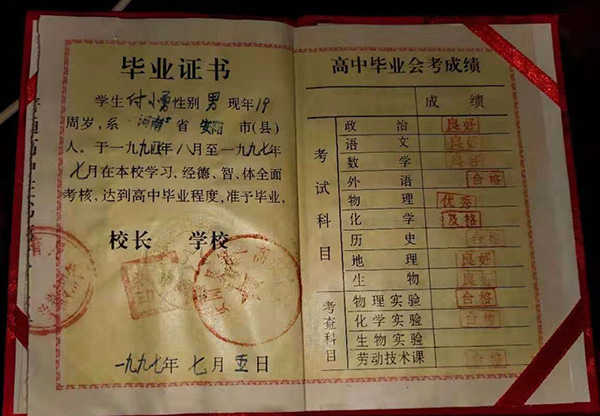 毕业证书
学生付小勇性别男现年19
周岁，系河南省安阳市(县)
人。于一九九四年八月至一九九七年
七月在本校学习，经德、智、体全面
考核，达到高中毕业程度，准予毕业。
校长 学校
一九九七年 七月五日
高中毕业会考成绩
成 绩
考试科目
政 治 良好
语 文 良好
数 学 良好
外 语 合格
物 理 优秀
化 学 及格
历 史 合格
地 理 良好
生 物 良好
考查科目
物理实验 合格
化学实验 合格
生物实验
劳动技术课 合格